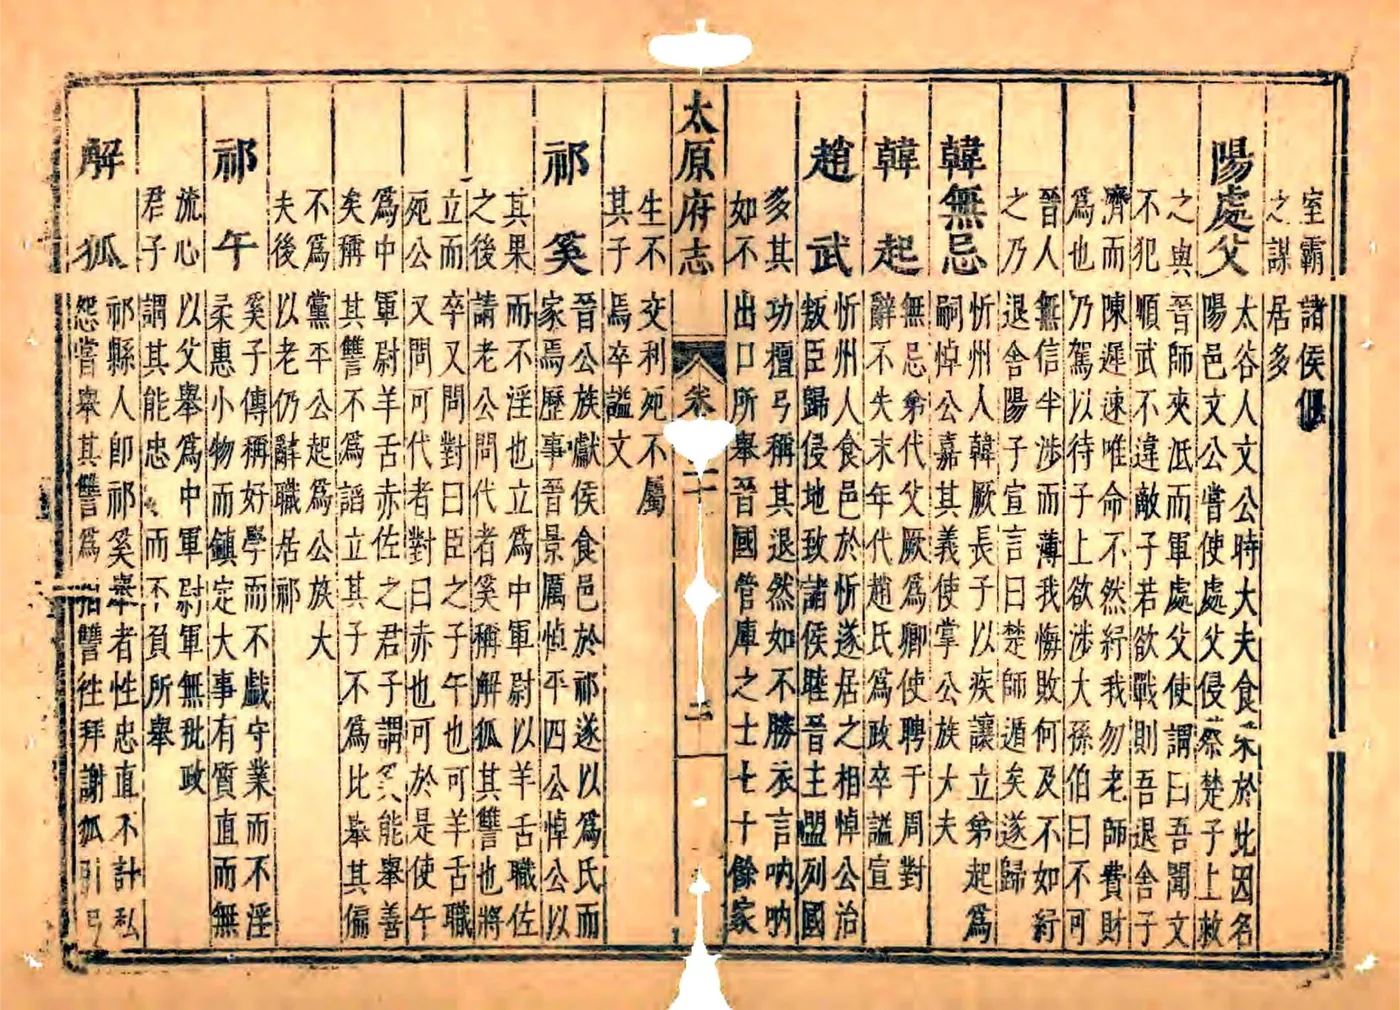 室霸諸侯偃
之謀居多
陽處父
太谷人文公時大夫食采於此因名
陽邑文公嘗使處父侵蔡楚子上救
之與晉師夾泜而軍處父使謂曰吾聞文
不犯順武不違敵子若欲戰則吾退舍子
濟而陳遲速唯命不然紓我勿老師費財
為也乃駕以待子上欲涉大孫伯曰不可
晉人無信半涉而薄我悔敗何及不如紓
之乃退舍陽子宣言曰楚師遁矣遂歸
韓無忌
忻州人韓厥長子以疾讓立弟起為
嗣悼公嘉其義使掌公族大夫
韓起
無忌弟代父厥為卿使聘于周對
辭不失末年代趙氏為政卒謚宣
趙武
忻州人食邑於忻遂居之相悼公治
叛臣歸侵地致諸侯睦晉主盟列國
多其功檀弓稱其退然如不勝衣言吶吶
如不出口所舉晉國管庫之士七十餘家
太原府志 卷 二
生不交利死不屬
其子焉卒謚文
祁奚
晉公族獻侯食邑於祁遂以為氏而
家焉歷事晉景厲悼平四公悼公以
其果而不淫也立為中軍尉以羊舌職佐
之後請老公問代者奚稱解狐其讐也將
立而卒又問對曰臣之子午也可羊舌職
死公又問可代者對曰赤也可於是使午
為中軍尉羊舌赤佐之君子謂奚能舉善
矣稱其讐不為諂立其子不為比舉其偏
不為黨平公起為公族大
夫後以老仍辭職居祁
祁午
奚子傳稱好學而不戲守業而不淫
柔惠小物而鎮定大事有質直而無
流心以父舉為中軍尉軍無批政
君子謂其能忠而不負所舉
解狐
祁縣人卽祁奚舉者性忠直不計私
怨嘗舉其讐為相讐往拜謝狐引弓